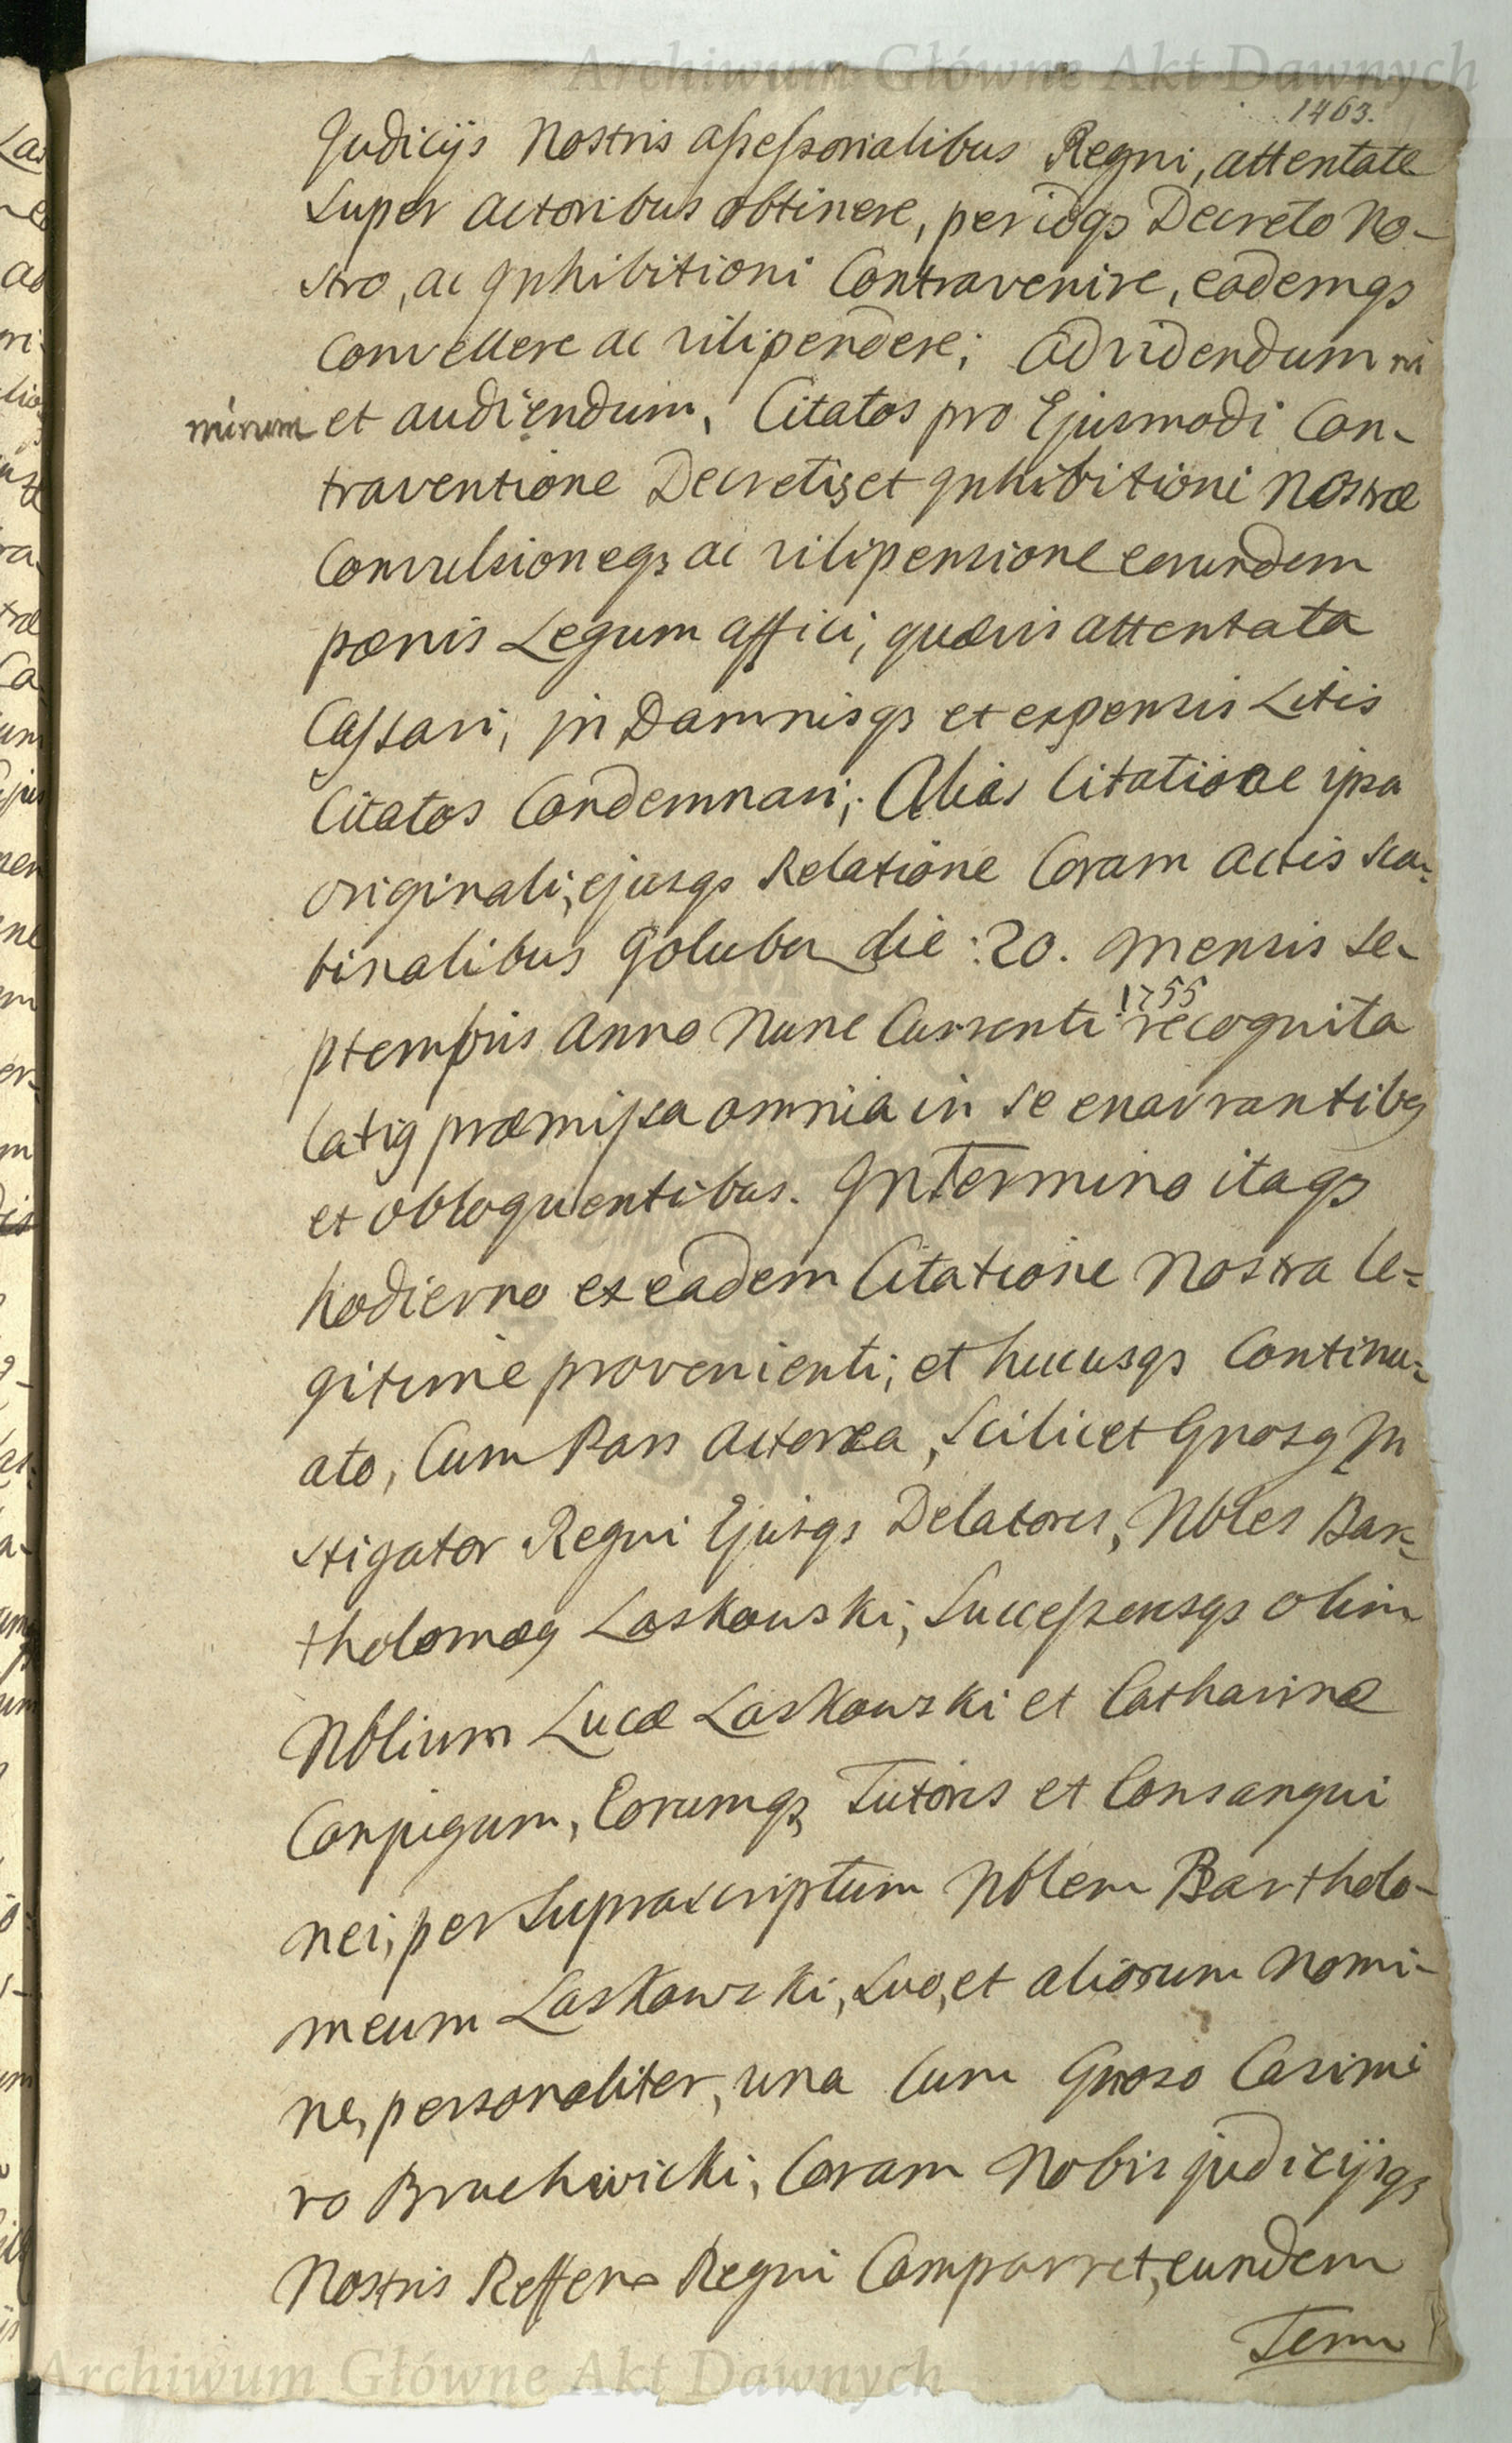 Archiwum Główne Akt Dawnych
1463.
Judicijs Nostris assessorialibus Regni, attentate
Super actoribus obtinere, per idqs Decreto No-
stro, ac Inhibitioni Contravenire, eademqs
Convellere ac vilipendere; Ad videndum ni
mirum et audiendum, Citatos pro Ejusmodi Con-
traventione Decretis et Inhibitioni Nostræ
Convulsioneqs ac vilipensione eorundem
pœnis Legum affici, quævis attentata
Cassari, in Damnisqs et expensis Litis
Citatos Condemnari; Alias Citatione ipsa
originali, ejusqs Relatione Coram actis Sca-
binalibus Goluben die : 20. Mensis Se-
ptembris Anno Nunc Currenti 1755 recognita
latiq præmissa omnia in se enarrantibq
et obloquentibus. In Termino itaqs
hodierno ex eadem Citatione Nostra le=
gitime provenienti, et hucusqs Continu=
ato, Cum Pars Actorea, Scilicet Gnosq In
stigator Regni Ejusqs Delatores, Nbles Bar=
tholomæq Laskowski, Successoresqs olim
Nblium Lucæ Laskowski et Catharinæ
Conjugum, Eorumqs Tutoris et Consangui
nei, per Suprascriptum Nblem Bartholo-
meum Laskowski, Suo, et aliorum Nomi-
ne, personaliter, una Cum Gnoso Casimi
ro Bruchwicki, Coram Nobis judicijsqs
Nostris Reffen Regni Comparret, eundem
Term
Archiwum Główne Akt Dawnych